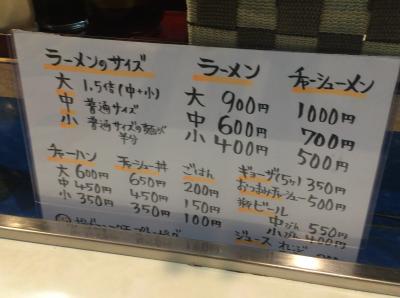 ラーメンのサイズ
大 1.5倍(中+小)
中 普通サイズ
小 普通サイズの麺が
半分
ラーメン
大 900円
中 600円
小 400円
チャーシューメン
1000円
700円
500円
チャーハン
大 600円
中 450円
小 350円
チャーシュー丼
650円
450円
350円
ごはん
200円
150円
100円
ギョーザ(5ヶ) 350円
おつまみチャーシュー 500円
ビール
中びん 550円
小びん 400円
ジュース オレンジ